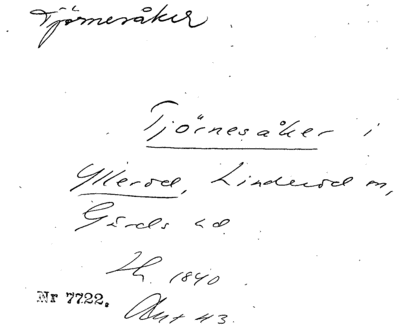 Tjörnesåker
Tjörnesåker i
Ylleröd, Linderöd sn,
Gärds hd.
Lh. 1840
Nr 7722. Akt 43.